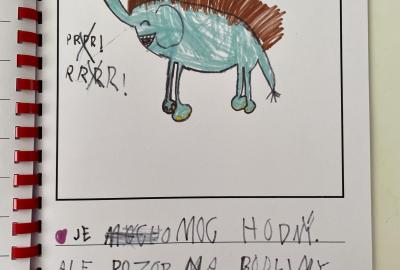 PRRR!
RRRR!
JE MOC HODNÝ.
ALE POZOR NA BODLINY